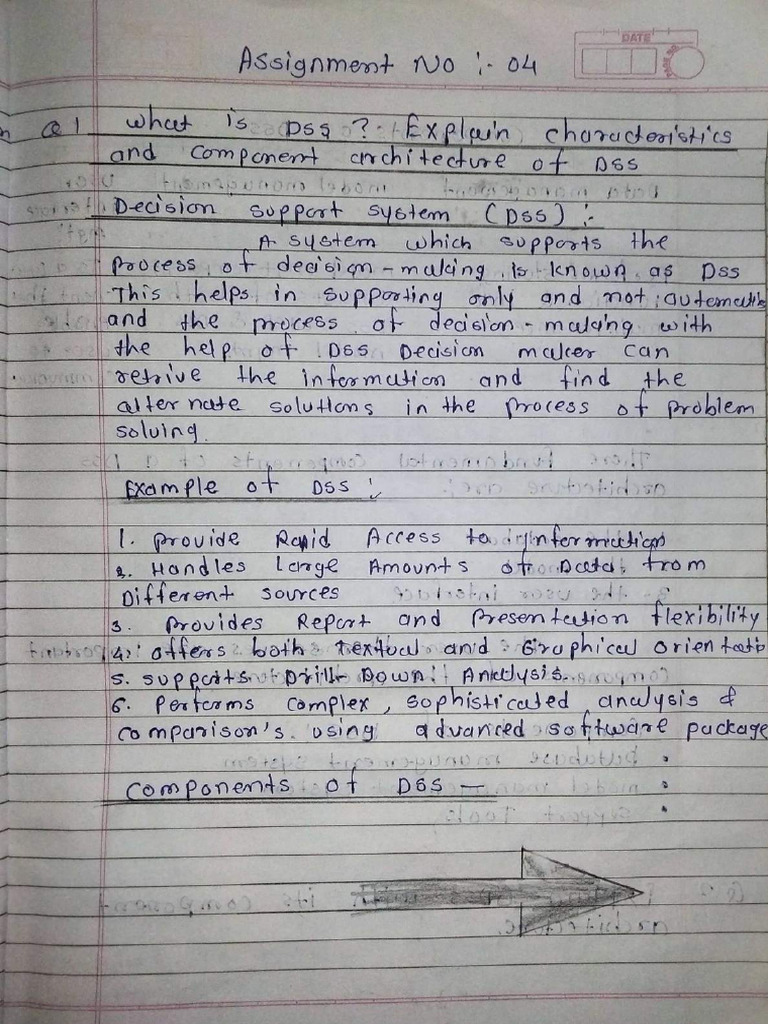 Assignment No :- 04
DATE
Q1 what is DSS ? Explain characteristics
and component architecture of DSS
Decision support system (DSS) :-
A system which supports the
process of decision-making is known as DSS
This helps in supporting only and not automatic
and the process of decision-making with
the help of DSS Decision maker can
retrive the information and find the
alternate solutions in the process of problem
solving.
Example of DSS :-
1. provide Rapid Access to information
2. Handles Large Amounts of Data from
Different sources
3. Provides Report and Presentation flexibility
4. offers both Textual and Graphical orientatio
5. supports Drill-Down Analysis.
6. Performs complex, sophisticated analysis &
comparison's using advanced software package
components of DSS -